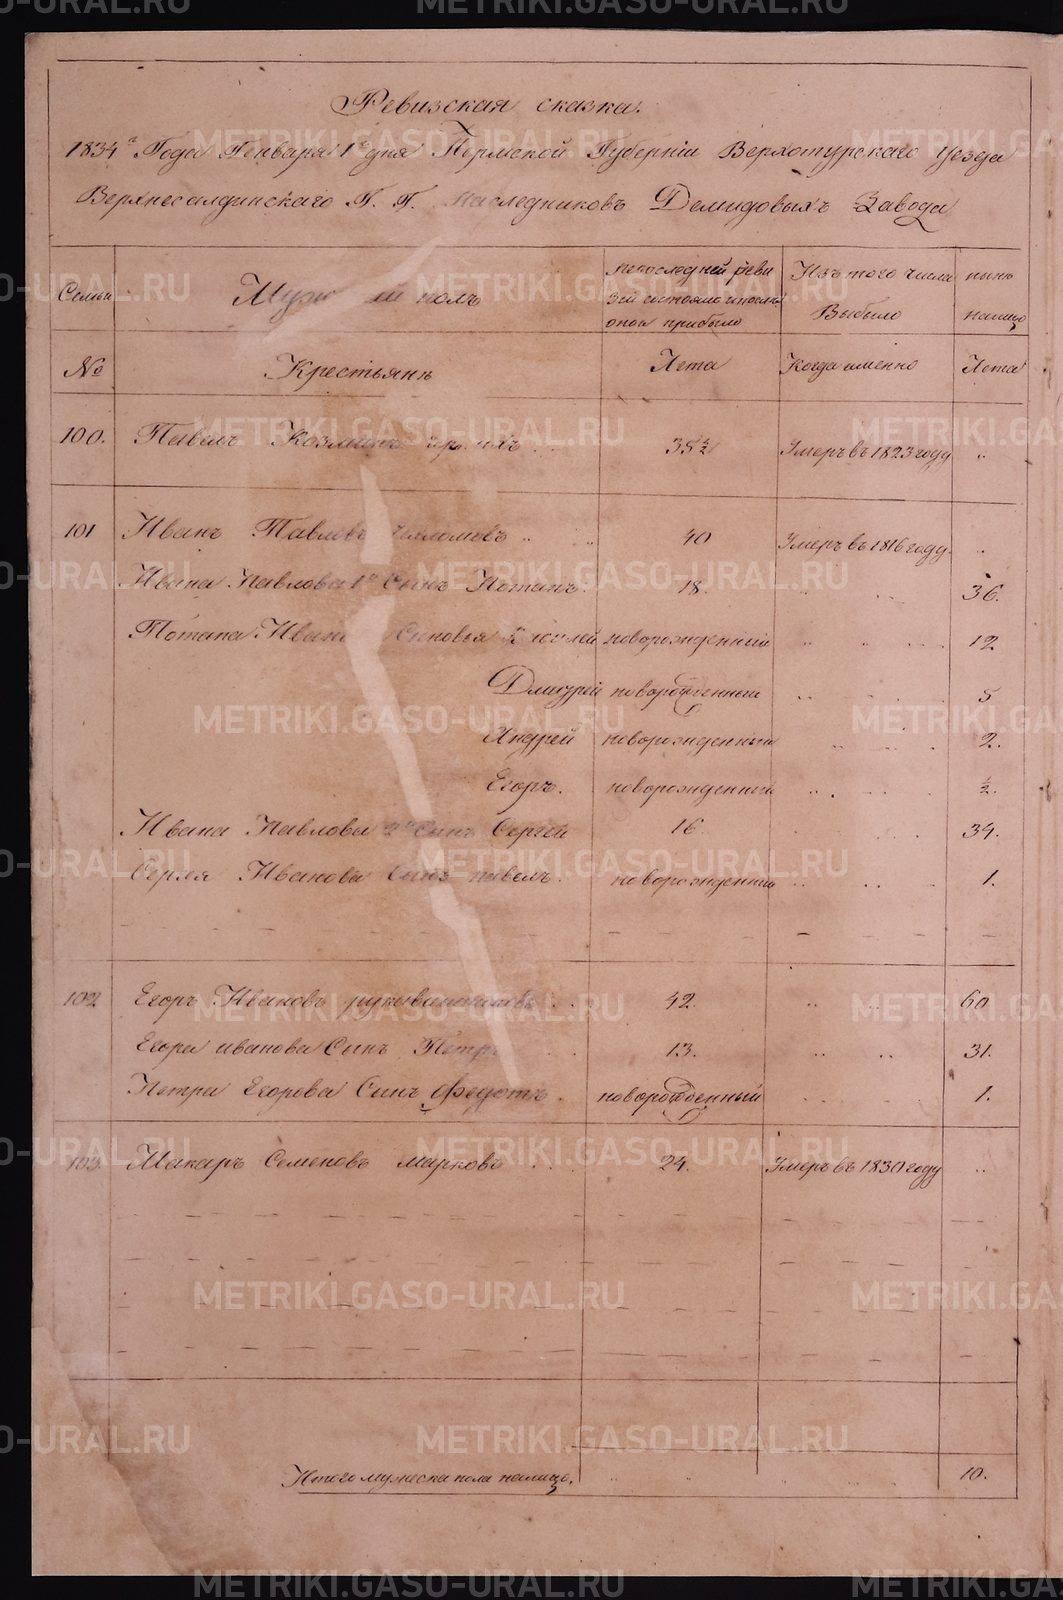 Ревизская сказка.
1834го Года Генваря 1го дня Пермской Губерніи Верхотурскаго уезда
Верхнесалдинскаго Г. Г. Наследниковъ Демидовыхъ Завода
Семьи
Муж й полъ
По последней реви
зіи состояло и после
оной прибыло
Изъ того числа
Выбыло
ныне
налицо
№
Крестьянъ
Лета
Когда именно
Лета
100. Павелъ Козминъ 35 ½ Умеръ въ 1823 году "
101 Иванъ Павловъ 40 Умеръ въ 1816 году "
Ивана Павлова 1й Сынъ Потапъ. 18. 36.
Потапа Ивано Сыновья новорожденный 12
Дмитрей новорожденный 5
Андрей новорожденный 2.
Егоръ. новорожденный ½.
Ивана Павлова 2й Сынъ Сергей 16 34.
Сергея Иванова Сынъ павелъ. новорожденный 1.
102 Егоръ Ивановъ рукавишниковъ 42. 60.
Егора иванова Сынъ Петръ 13. 31.
Петра Егорова Сынъ Федотъ. новорожденный 1.
103. Макаръ Семеновъ марковъ 24. Умеръ въ 1830 году "
Итого мужеска пола налицо. 10.
METRIKI.GASO-URAL.RU